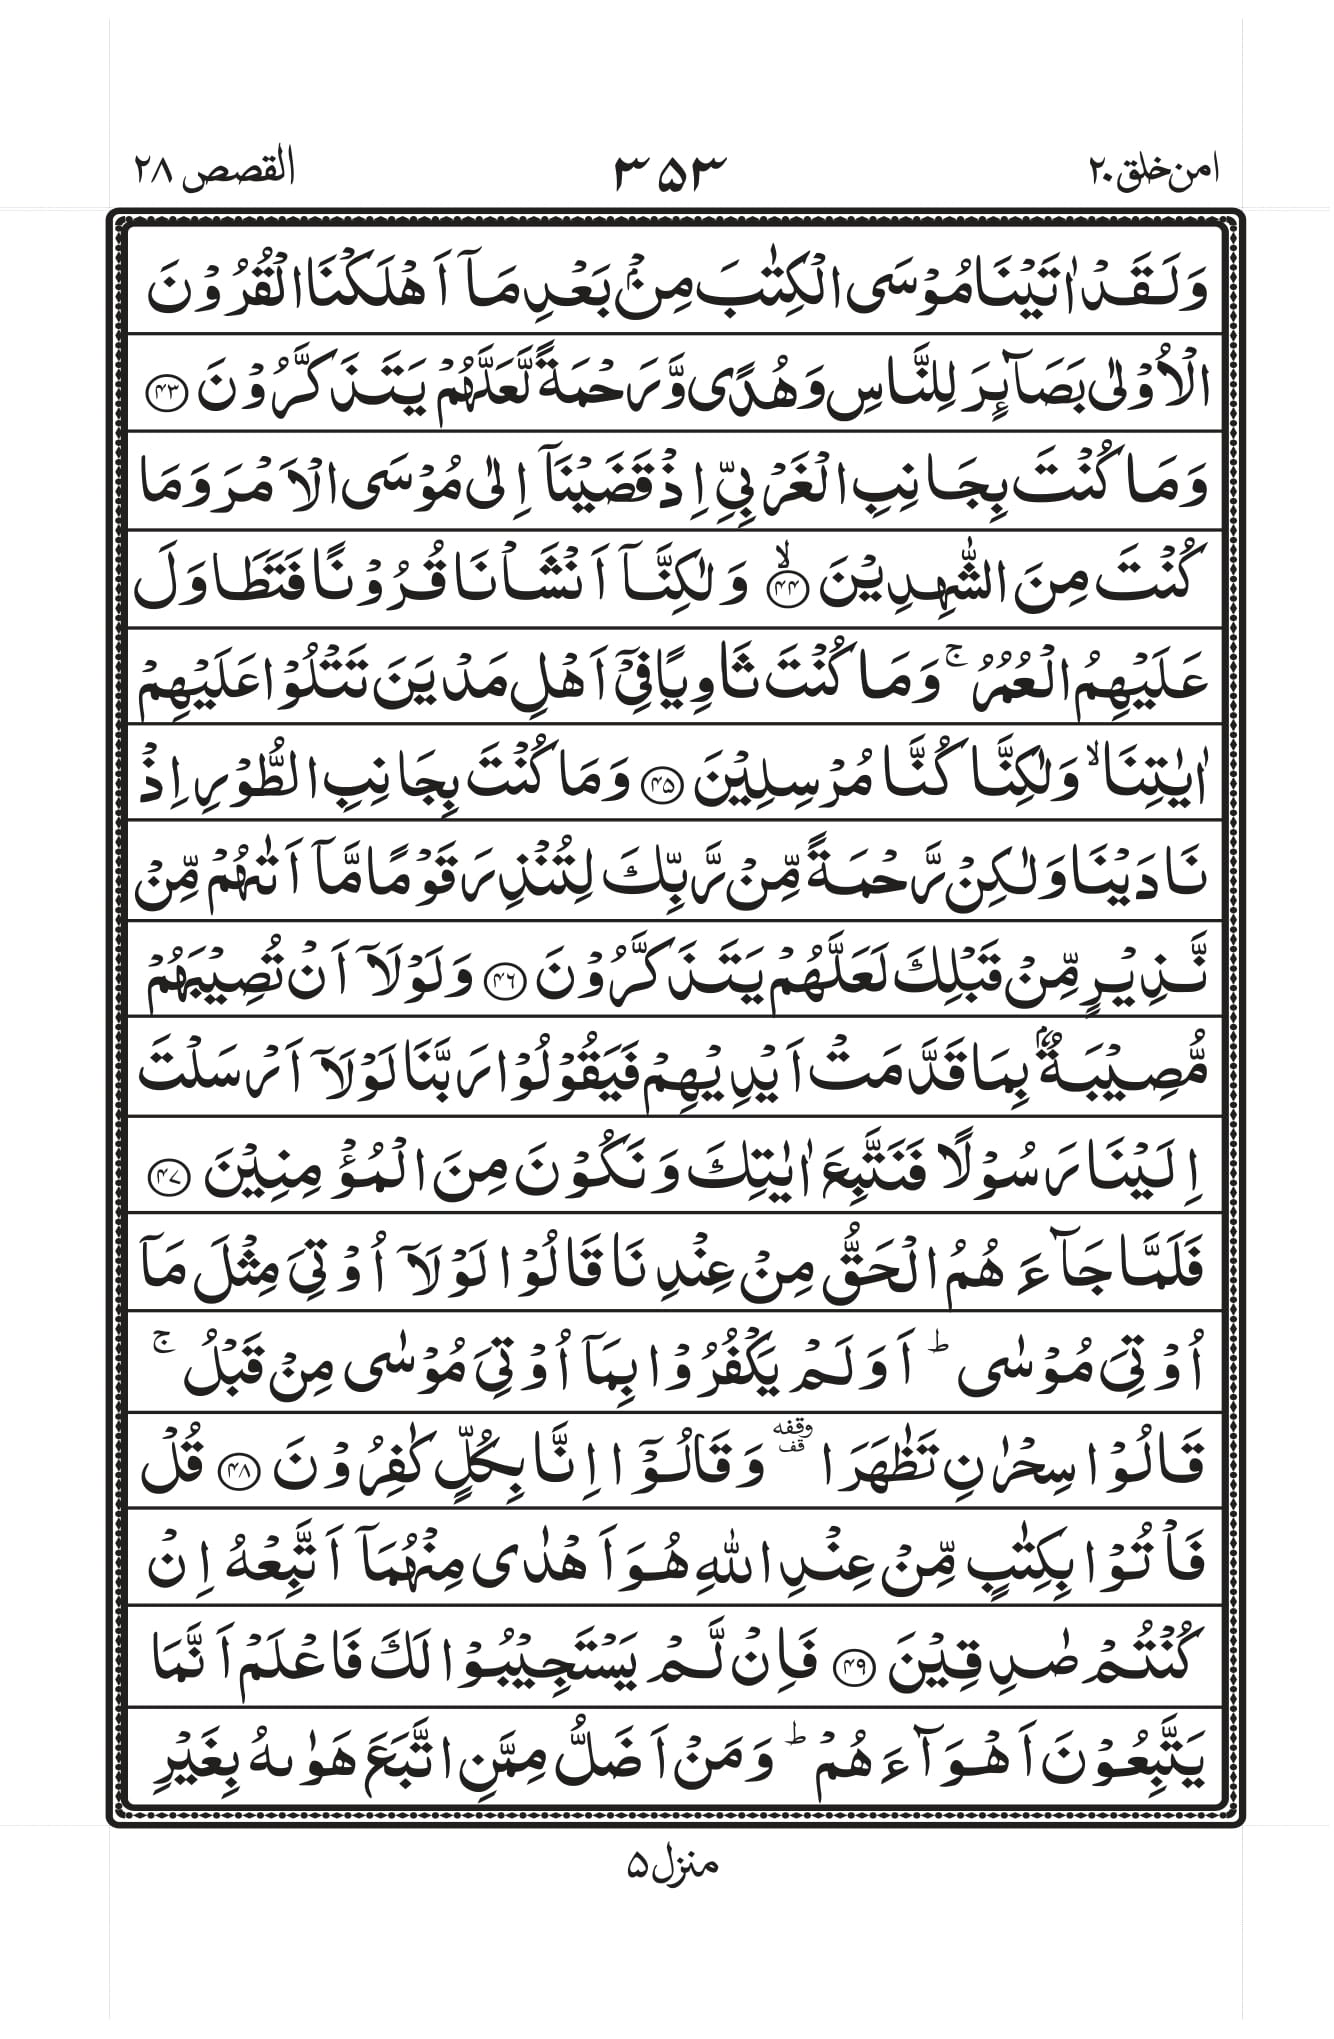 امن خلق ۲۰
۳۵۳
القصص ۲۸
وَلَقَدۡ اٰتَيۡنَا مُوۡسَى الۡكِتٰبَ مِنۡۢ بَعۡدِ مَاۤ اَهۡلَكۡنَا الۡقُرُوۡنَ
الۡاُوۡلٰى بَصَآٮِٕرَ لِلنَّاسِ وَهُدًى وَّرَحۡمَةً لَّعَلَّهُمۡ يَتَذَكَّرُوۡنَ ﴿۴۳﴾
وَمَا كُنۡتَ بِجَانِبِ الۡغَرۡبِىِّ اِذۡ قَضَيۡنَاۤ اِلٰى مُوۡسَى الۡاَمۡرَ وَمَا
كُنۡتَ مِنَ الشّٰهِدِيۡنَۙ‏ ﴿۴۴﴾ وَلٰـكِنَّاۤ اَنۡشَاۡنَا قُرُوۡنًا فَتَطَاوَلَ
عَلَيۡهِمُ الۡعُمُرُ‌ۚ وَمَا كُنۡتَ ثَاوِيًا فِىۡۤ اَهۡلِ مَدۡيَنَ تَـتۡلُوۡا عَلَيۡهِمۡ
اٰيٰتِنَاۙ وَلٰـكِنَّا كُنَّا مُرۡسِلِيۡنَ ﴿۴۵﴾ وَمَا كُنۡتَ بِجَانِبِ الطُّوۡرِ اِذۡ
نَادَيۡنَا وَلٰـكِنۡ رَّحۡمَةً مِّنۡ رَّبِّكَ لِتُنۡذِرَ قَوۡمًا مَّاۤ اَتٰٮهُمۡ مِّنۡ
نَّذِيۡرٍ مِّنۡ قَبۡلِكَ لَعَلَّهُمۡ يَتَذَكَّرُوۡنَ ﴿۴۶﴾ وَلَوۡلَاۤ اَنۡ تُصِيۡبَـهُمۡ
مُّصِيۡبَةٌۢ بِمَا قَدَّمَتۡ اَيۡدِيۡهِمۡ فَيَقُوۡلُوۡا رَبَّنَا لَوۡلَاۤ اَرۡسَلۡتَ
اِلَـيۡنَا رَسُوۡلًا فَنَـتَّبِعَ اٰيٰتِكَ وَنَـكُوۡنَ مِنَ الۡمُؤۡمِنِيۡنَ ﴿۴۷﴾
فَلَمَّا جَآءَهُمُ الۡحَـقُّ مِنۡ عِنۡدِنَا قَالُوۡا لَوۡلَاۤ اُوۡتِىَ مِثۡلَ مَاۤ
اُوۡتِىَ مُوۡسٰى‌ؕ اَوَلَمۡ يَكۡفُرُوۡا بِمَاۤ اُوۡتِىَ مُوۡسٰى مِنۡ قَبۡلُ‌ۚ
قَالُوۡا سِحۡرٰنِ تَظٰهَرَا وقفه قف وَقَالُوۡۤا اِنَّا بِكُلٍّ كٰفِرُوۡنَ ﴿۴۸﴾ قُلۡ
فَاۡتُوۡا بِكِتٰبٍ مِّنۡ عِنۡدِ اللّٰهِ هُوَ اَهۡدٰى مِنۡهُمَاۤ اَتَّبِعۡهُ اِنۡ
كُنۡتُمۡ صٰدِقِيۡنَ ﴿۴۹﴾ فَاِنۡ لَّمۡ يَسۡتَجِيۡبُوۡا لَكَ فَاعۡلَمۡ اَنَّمَا
يَـتَّبِعُوۡنَ اَهۡوَآءَهُمۡ‌ؕ وَمَنۡ اَضَلُّ مِمَّنِ اتَّبَعَ هَوٰٮهُ بِغَيۡرِ
منزل ۵